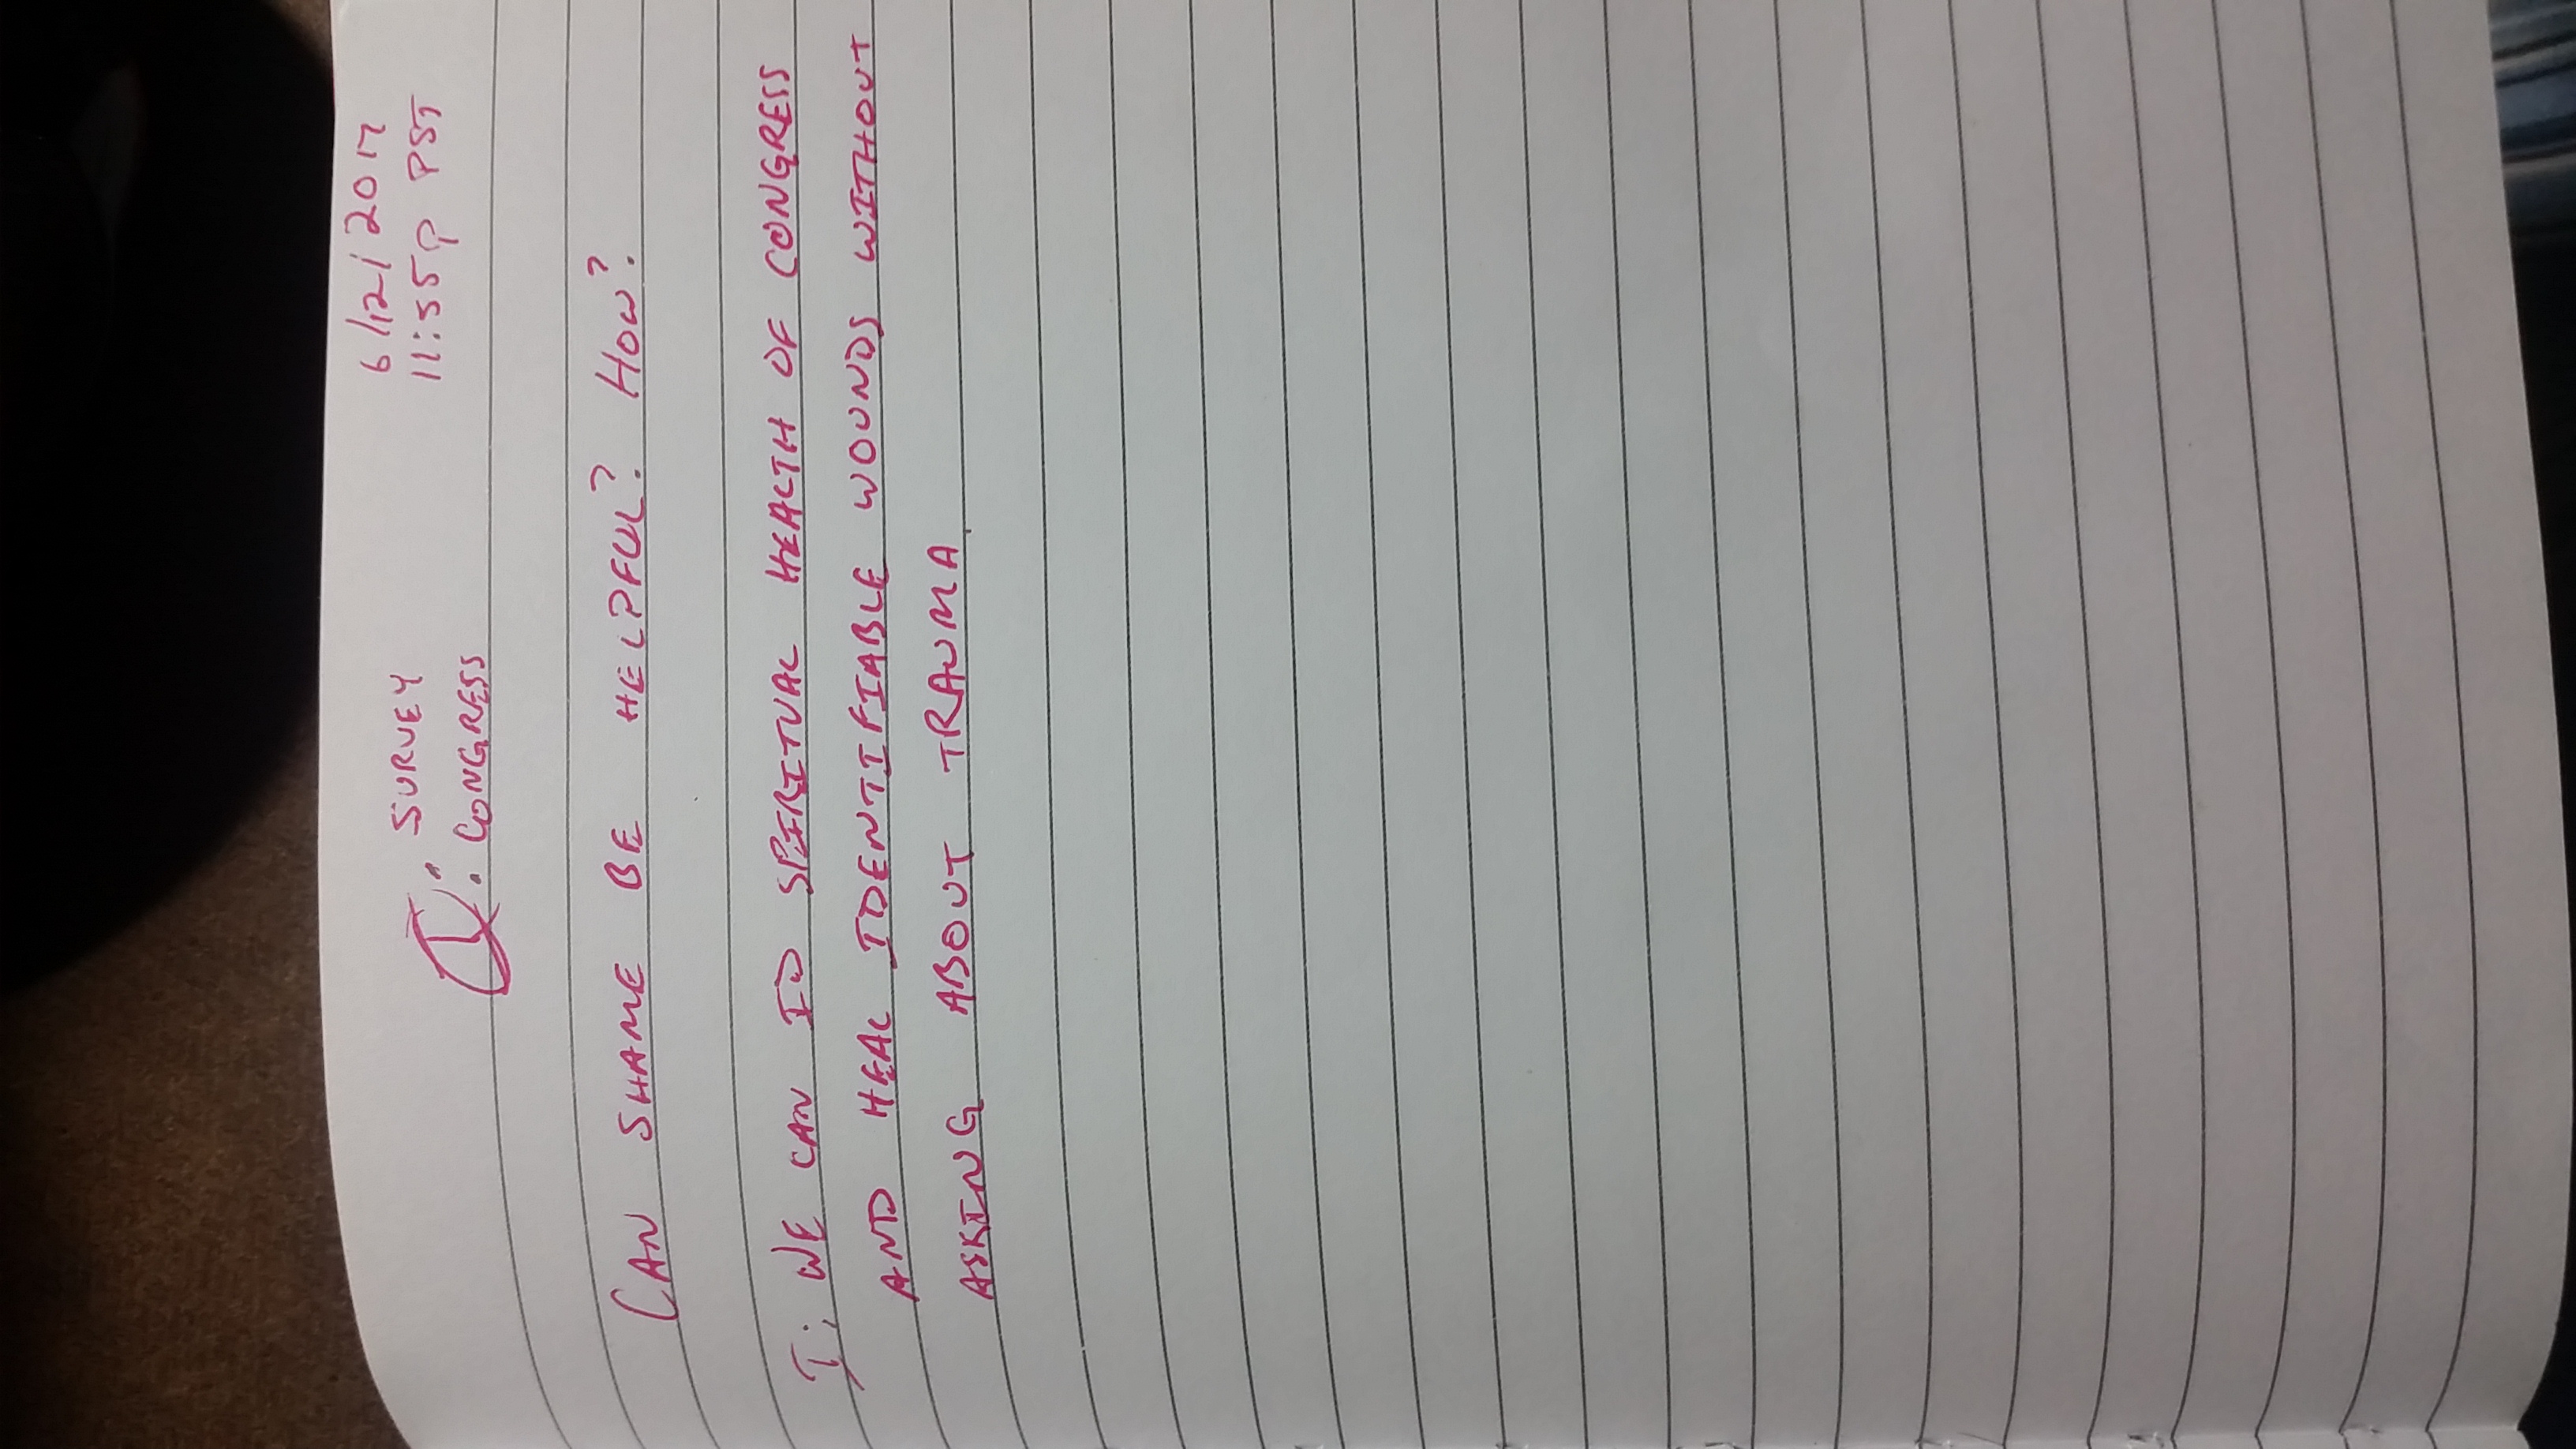 6/12/2017
11:55p PST
I: SURVEY
: CONGRESS
CAN SHAME BE HELPFUL? HOW?
I: WE CAN ID SPIRITUAL HEALTH OF CONGRESS
AND HEAL IDENTIFIABLE WOUNDS WITHOUT
ASKING ABOUT TRAUMA.